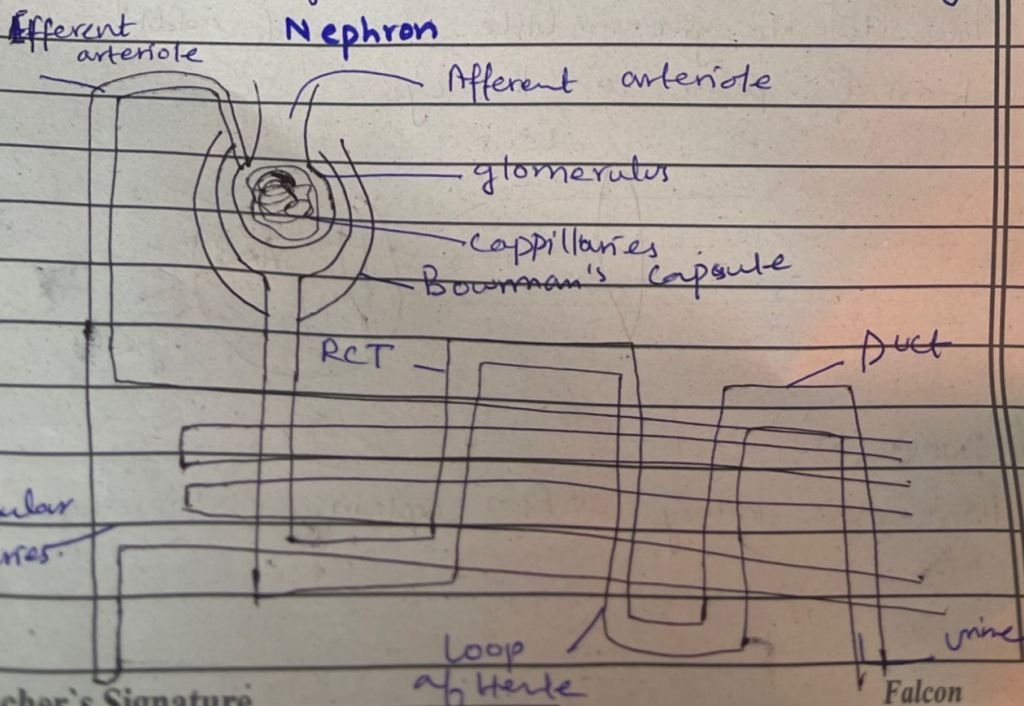 Nephron
Efferent
arteriole
Afferent arteriole
glomerulus
cappillaries
Bowman's capsule
RCT
Duct
ular
ries.
Loop
of Henle
urine
cher's Signature
Falcon